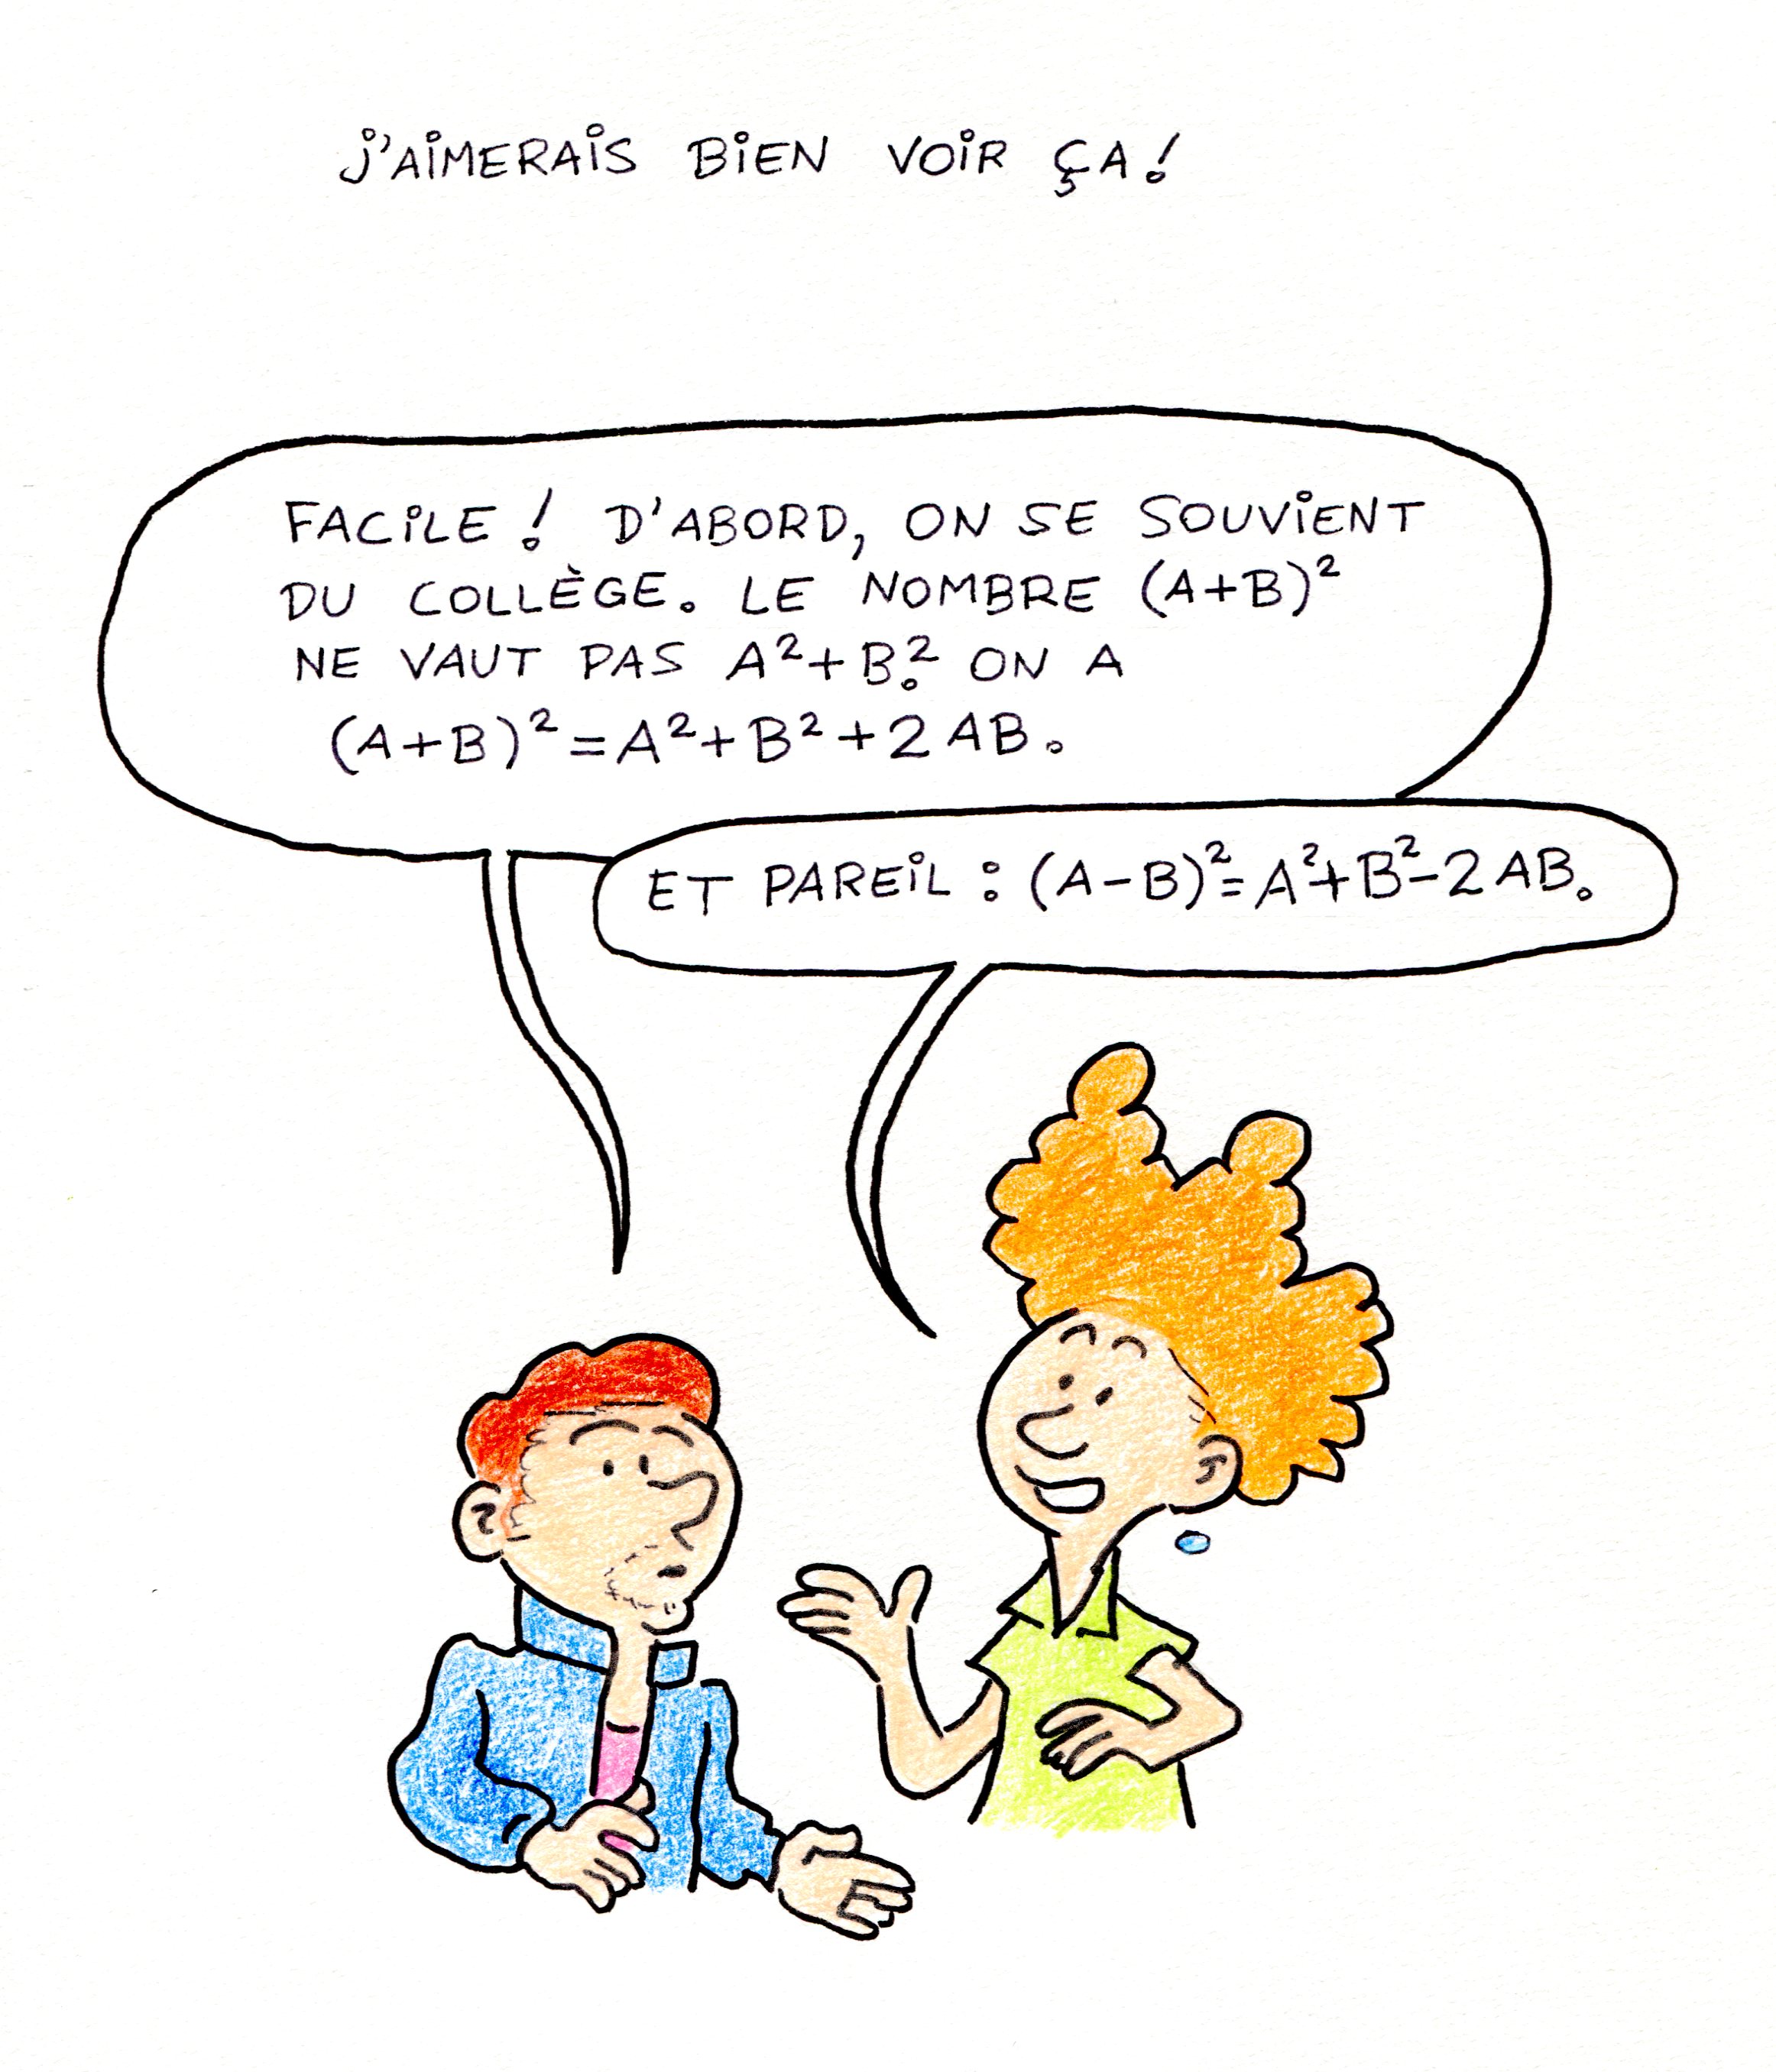 J'AIMERAIS BIEN VOIR ÇA!
FACILE! D'ABORD, ON SE SOUVIENT
DU COLLÈGE. LE NOMBRE (A+B)²
NE VAUT PAS A²+B². ON A
(A+B)²=A²+B²+2AB.
ET PAREIL : (A-B)²=A²+B²-2AB.